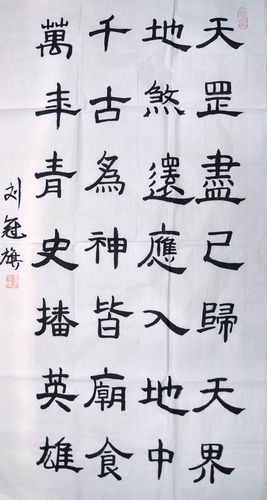 天罡盡已歸天界
地煞還應入地中
千古為神皆廟食
萬年青史播英雄
刘冠旗